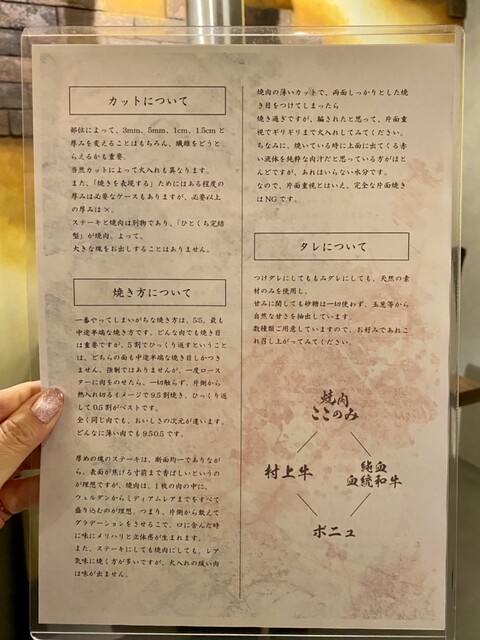 カットについて
部位によって、3mm、5mm、1cm、1.5cm と
厚みを変えることはもちろん、繊維をどうと
らえるかも重要。
当然カットによって火入れも異なります。
また、「焼きを表現する」ためにはある程度の
厚みは必要なケースもありますが、必要以上
の厚みは×。
ステーキと焼肉は別物であり、「ひとくち完結
型」が焼肉、よって、
大きな塊をお出しすることはありません。
焼き方について
一番やってしまいがちな焼き方は、5:5。最も
中途半端な焼き方です。どんな肉でも焼き目
は重要ですが、5割でひっくり返すということ
は、どちらの面も中途半端な焼き目しかつき
ません。強制ではありませんが、一度ロース
ターに肉をのせたら、一切触らず、片側から
熱入れ切るイメージで9.5割焼き、ひっくり返
して0.5割がベストです。
全く同じ肉でも、おいしさの次元が違います。
どんなに薄い肉でも9.5:0.5です。
厚めの塊のステーキは、断面均一でありなが
ら、表面が焦げる寸前まで香ばしいというの
が理想ですが、焼肉は、1枚の肉の中に、
ウェルダンからミディアムレアまでをすべて
盛り込むのが理想。つまり、片側から敢えて
グラデーションをきかせることで、口に含んだ時
に味にメリハリと立体感が生まれます。
また、ステーキにしても焼肉にしても、レア
気味に焼く方が多いですが、火入れの緩い肉
は味が出ません。
焼肉の薄いカットで、両面しっかりとした焼
き目をつけてしまったら
焼き過ぎですが、騙されたと思って、片面重
視でギリギリまで火入れしてみてください。
ちなみに、焼いている時に上面に出てくる赤
い液体を純粋な肉汁だと思っている方がほと
んどですが、あれはいらない水分です。
なので、片面重視とはいえ、完全な片面焼き
はNGです。
タレについて
つけダレにしてももみダレにしても、天然の素
材のみを使用し、
甘みに関しても砂糖は一切使わず、玉葱等から
自然な甘さを抽出しています。
数種類ご用意していますので、お好みであれこ
れ召し上がってみてください。
焼肉
ここのみ
村上牛
純血
血統和牛
ボニュ